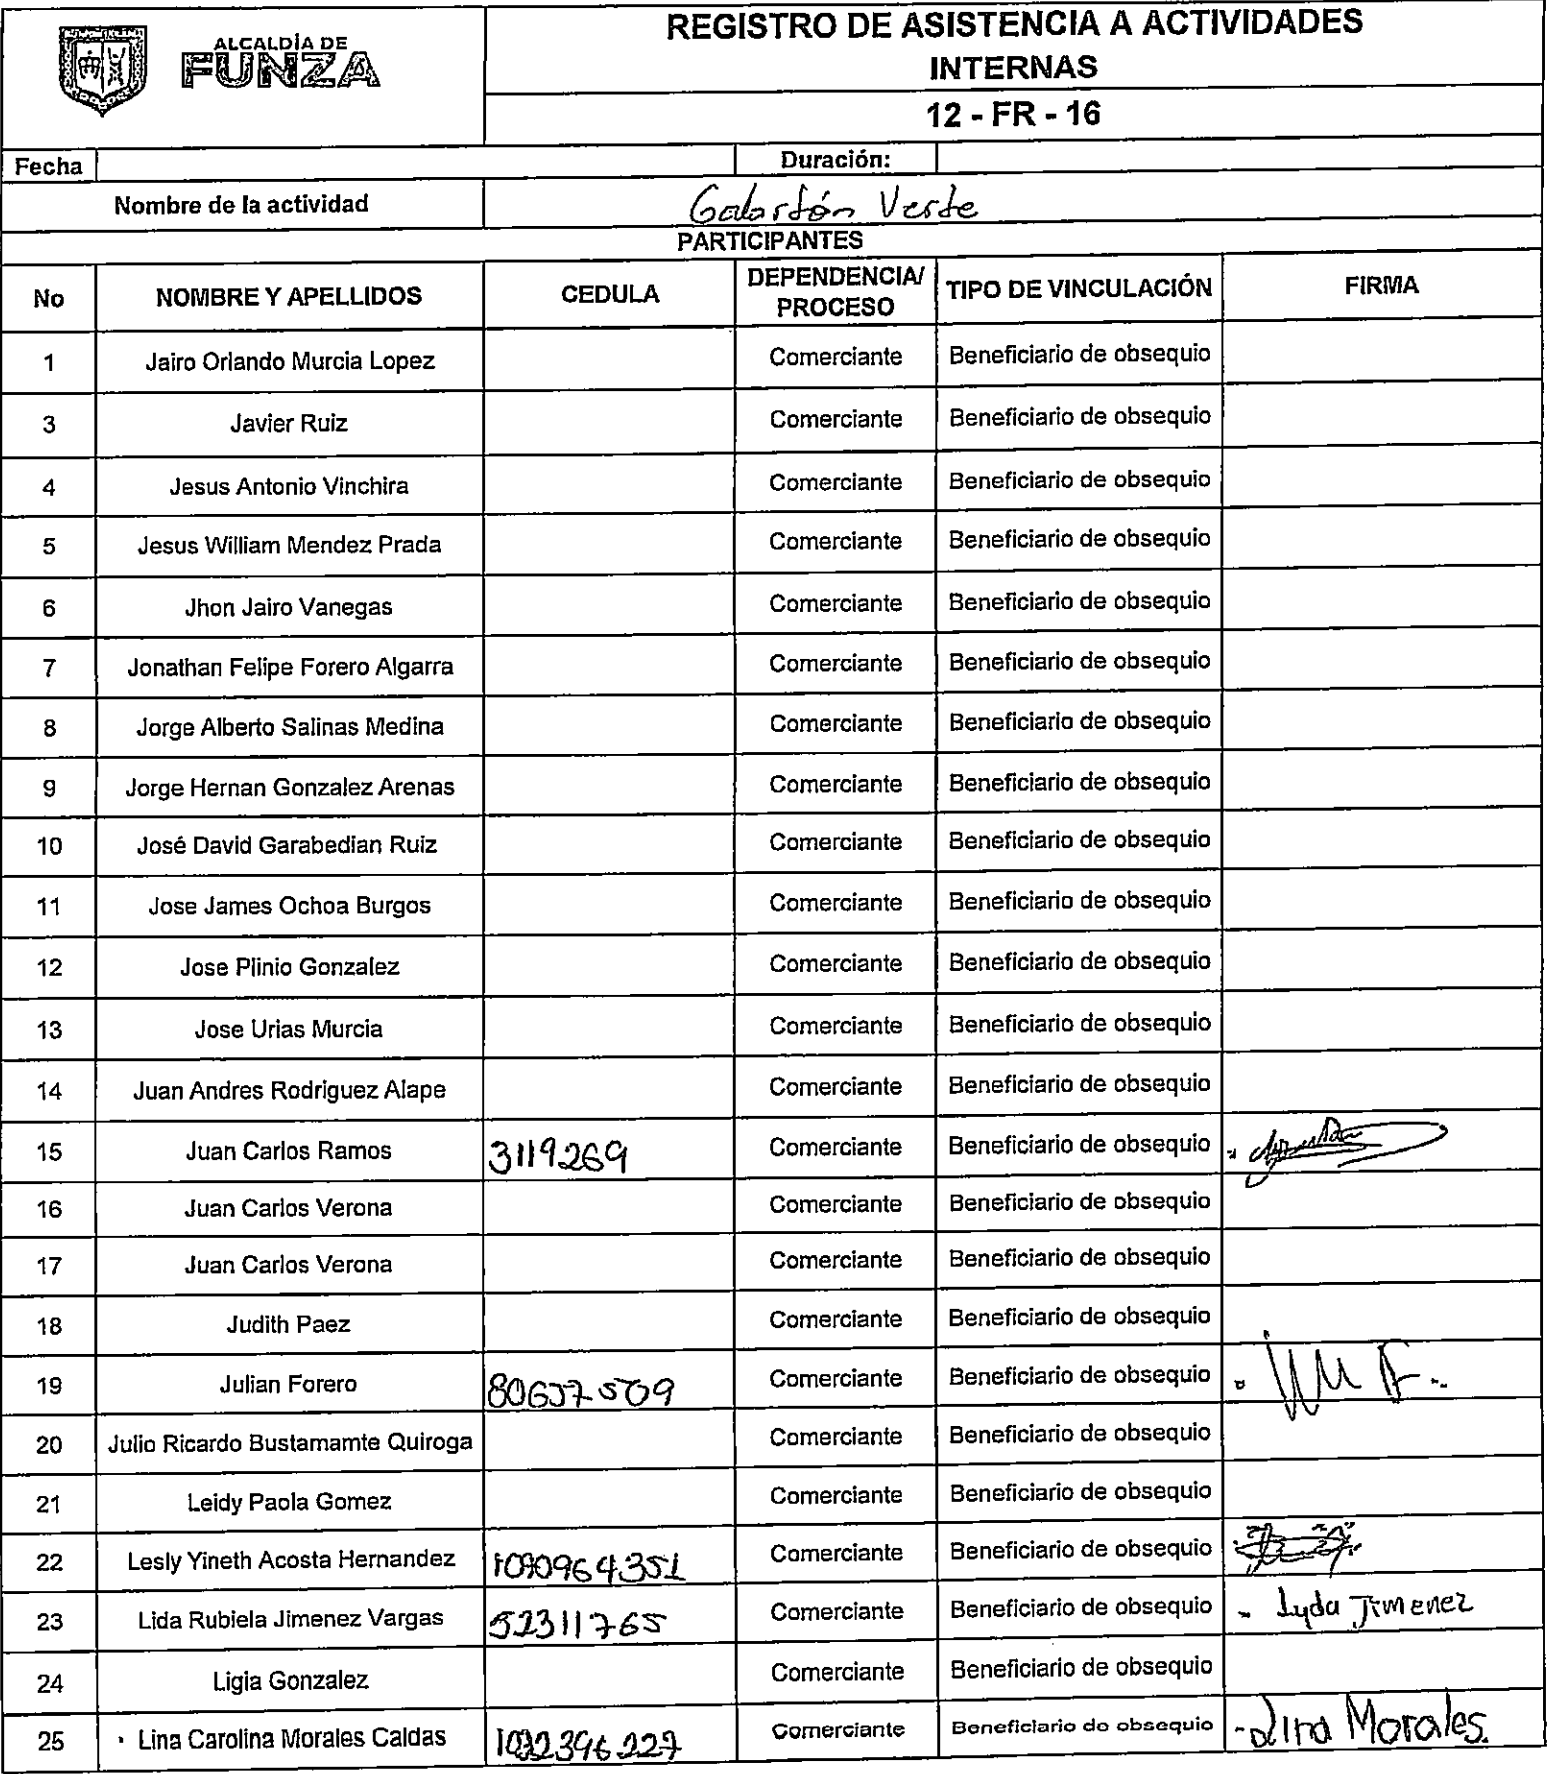 ALCALDÍA DE
FUNZA
REGISTRO DE ASISTENCIA A ACTIVIDADES
INTERNAS
12 - FR - 16
Fecha Duración:
Nombre de la actividad Galardón Verde
PARTICIPANTES
No NOMBRE Y APELLIDOS CEDULA DEPENDENCIA/ PROCESO TIPO DE VINCULACIÓN FIRMA
1 Jairo Orlando Murcia Lopez Comerciante Beneficiario de obsequio
3 Javier Ruiz Comerciante Beneficiario de obsequio
4 Jesus Antonio Vinchira Comerciante Beneficiario de obsequio
5 Jesus William Mendez Prada Comerciante Beneficiario de obsequio
6 Jhon Jairo Vanegas Comerciante Beneficiario de obsequio
7 Jonathan Felipe Forero Algarra Comerciante Beneficiario de obsequio
8 Jorge Alberto Salinas Medina Comerciante Beneficiario de obsequio
9 Jorge Hernan Gonzalez Arenas Comerciante Beneficiario de obsequio
10 José David Garabedian Ruiz Comerciante Beneficiario de obsequio
11 Jose James Ochoa Burgos Comerciante Beneficiario de obsequio
12 Jose Plinio Gonzalez Comerciante Beneficiario de obsequio
13 Jose Urias Murcia Comerciante Beneficiario de obsequio
14 Juan Andres Rodriguez Alape Comerciante Beneficiario de obsequio
15 Juan Carlos Ramos 3119269 Comerciante Beneficiario de obsequio
16 Juan Carlos Verona Comerciante Beneficiario de obsequio
17 Juan Carlos Verona Comerciante Beneficiario de obsequio
18 Judith Paez Comerciante Beneficiario de obsequio
19 Julian Forero 80657509 Comerciante Beneficiario de obsequio
20 Julio Ricardo Bustamamte Quiroga Comerciante Beneficiario de obsequio
21 Leidy Paola Gomez Comerciante Beneficiario de obsequio
22 Lesly Yineth Acosta Hernandez Comerciante Beneficiario de obsequio
23 Lida Rubiela Jimenez Vargas 52311765 Comerciante Beneficiario de obsequio Lyda Jimenez
24 Ligia Gonzalez Comerciante Beneficiario de obsequio
25 Lina Carolina Morales Caldas Comerciante Beneficiario de obsequio Lina Morales.